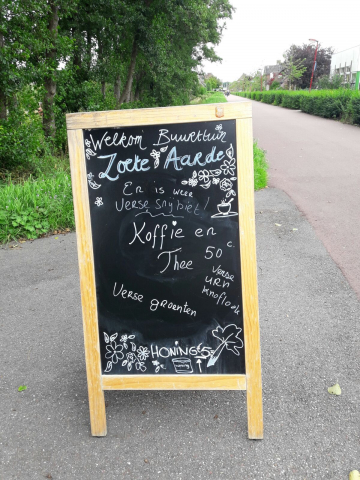 Welkom Buurttuin
Zoete Aarde
Er is weer
verse snijbiet!
Koffie en
Thee
50 c.
verse
knoflook
Verse groenten
HONING 5,-